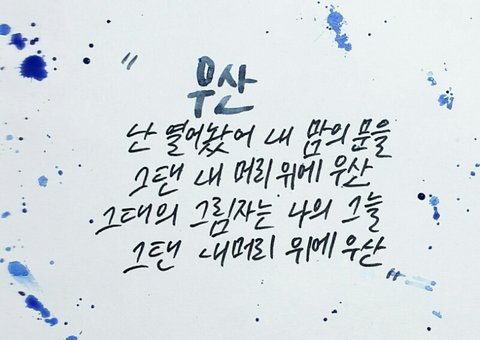 "
우산
난 열어놨어 내 맘의 문을
그댄 내 머리 위에 우산
그대의 그림자는 나의 그늘
그댄 내 머리 위에 우산
"